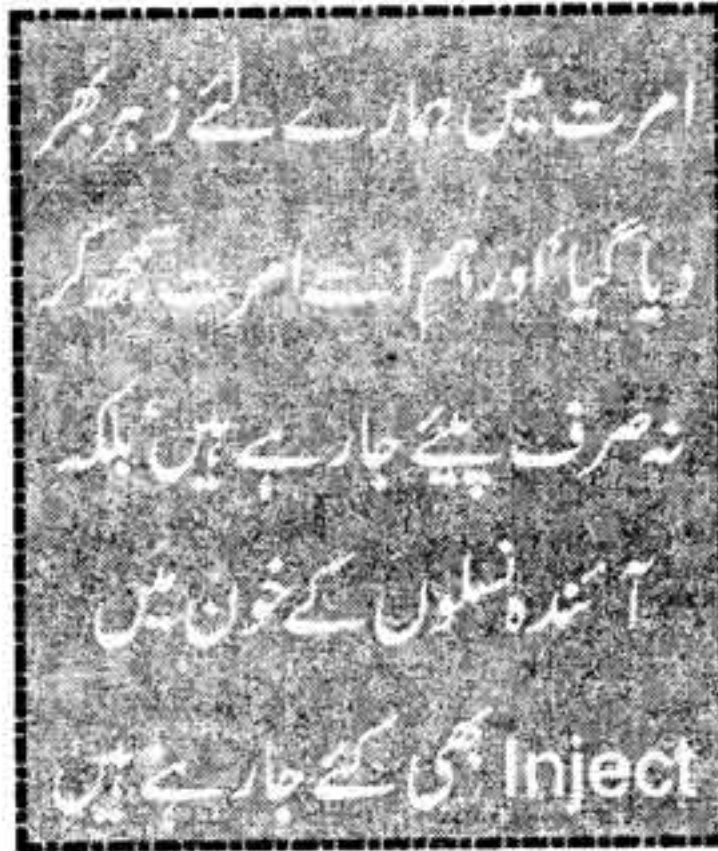 امرت میں ہمارے لئے زہر بھر
دیا گیا، اور ہم اسے امرت سمجھ کر
نہ صرف پیئے جارہے ہیں، بلکہ
آئندہ نسلوں کے خون میں
Inject بھی کئے جارہے ہیں